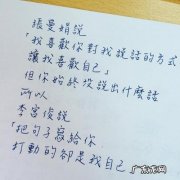 張曼娟說
「我喜歡你對我說話的方式
讓我喜歡自己」
但你始終沒說出什麼話
所以
李宮俊說
「把句子寂給你
打動的卻是我自己